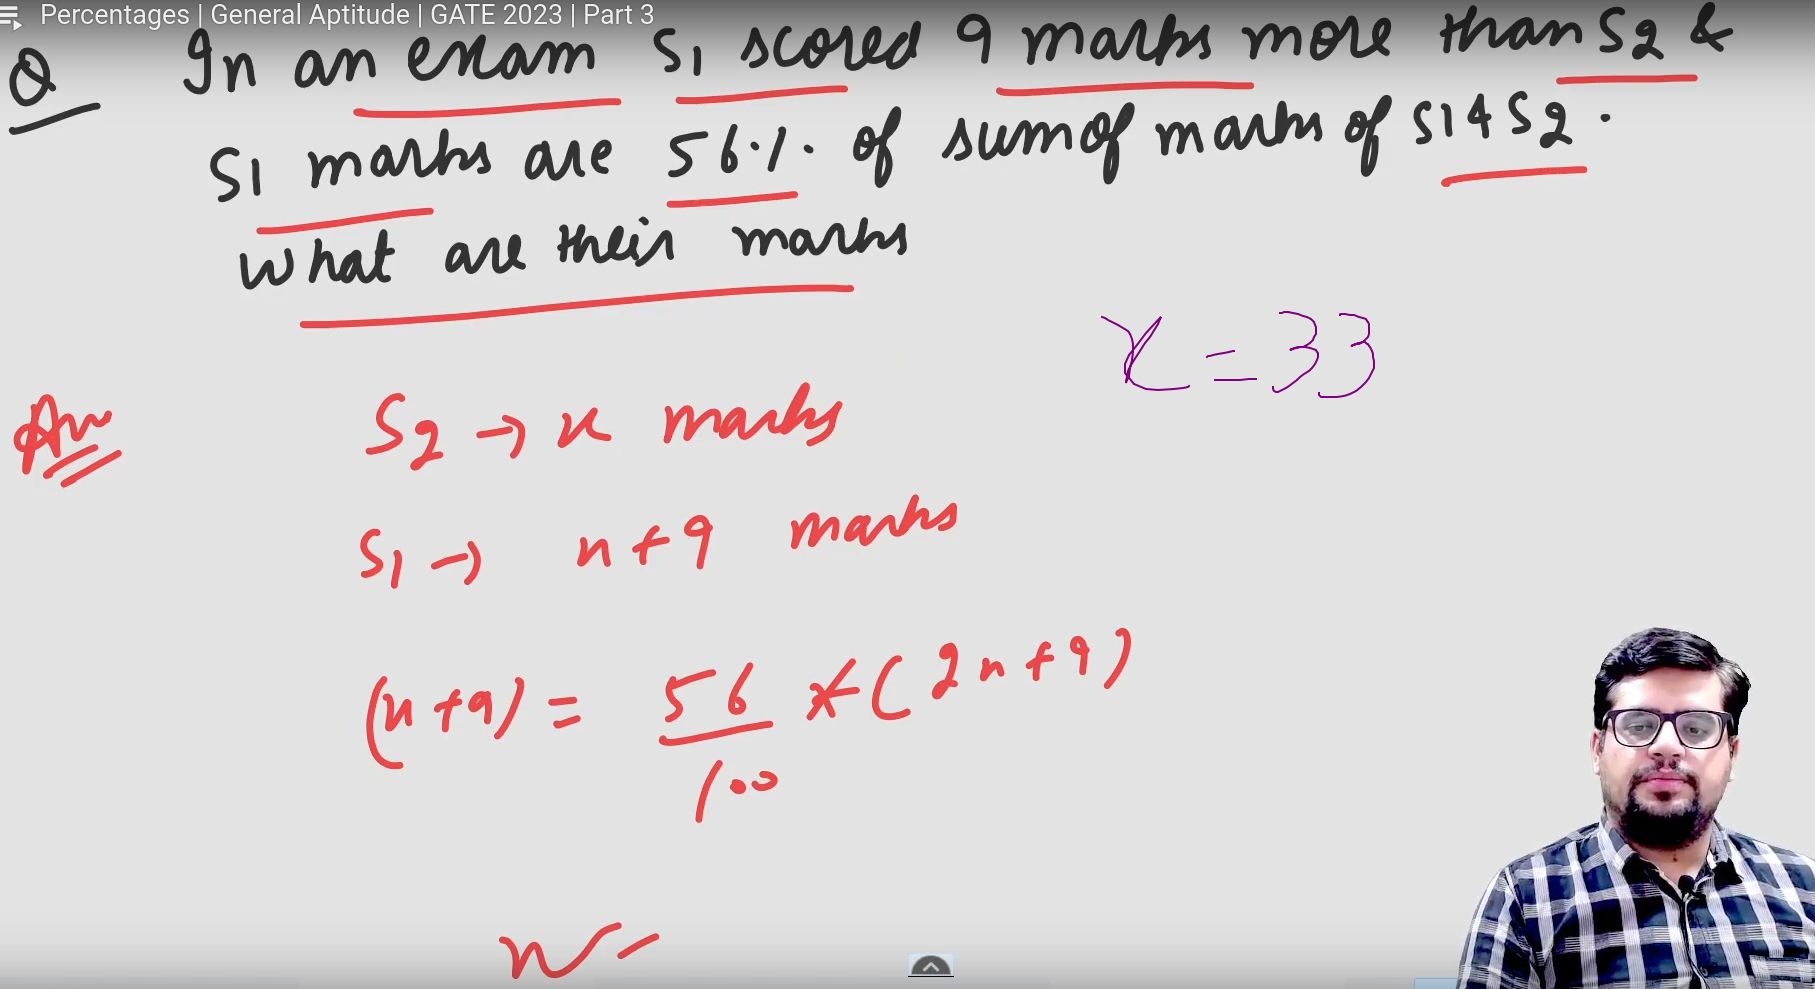 Percentages | General Aptitude | GATE 2023 | Part 3
Q In an exam S1 scored 9 marks more than S2 &
S1 marks are 56% of sum of marks of S1 & S2.
What are their marks
x = 33
Ans S2 → x marks
S1 → x + 9 marks
(x + 9) = 56/100 * (2x + 9)
x =